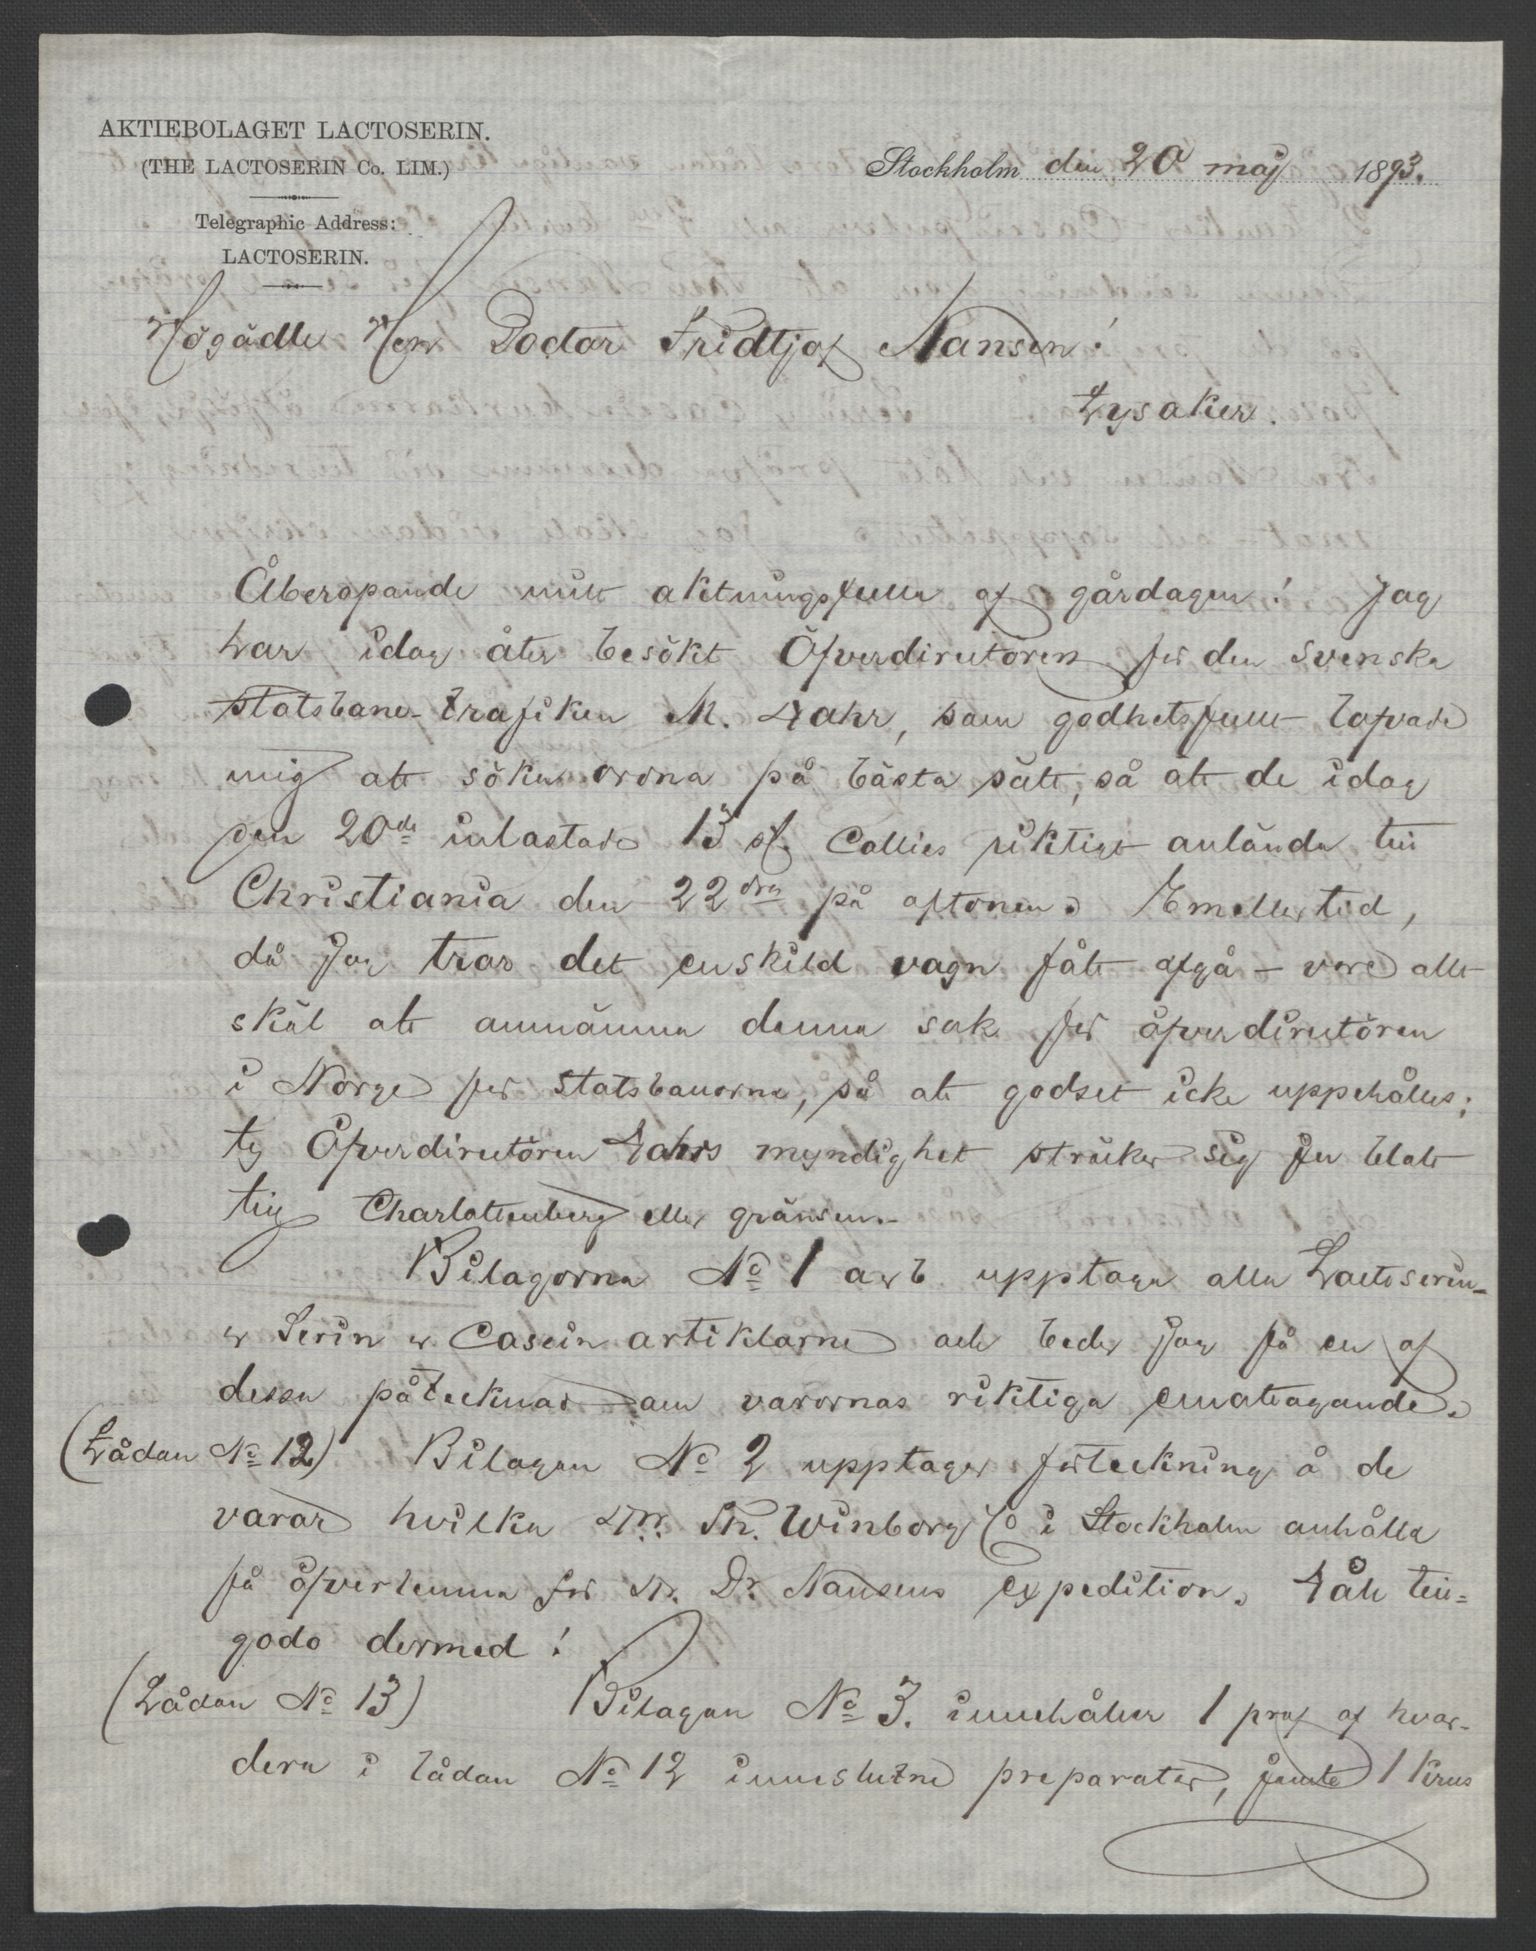 AKTIEBOLAGET LACTOSERIN.
(THE LACTOSERIN Co. LIM.)
Telegraphic Address:
LACTOSERIN.
Stockholm den 20 maj 1893.
Högädle Herr Doctor Fridtjof Nansen!
Lysaker.
Åberopande mitt aktningsfulla af gårdagen! Jag
har idag åter besökt Öfverdirektören för den svenska
statsbane-trafiken M. Hahr, som godhetsfullt lofvade
mig att söka ordna på bästa sätt, så att de idag
den 20de inlastade 13 st. Collies riktigt anlända till
Christiania den 22dra på aftonen. Emellertid,
då jag tror det enskild vagn fått afgå - vore allt
skäl att omnämna denna sak för öfverdirektören
i Norge för statsbanorna, så att godset icke uppehålles;
ty Öfverdirektören Hahrs myndighet sträcker sig ju blott
till Charlottenberg eller gränsen.-
Bilagorna No 1 a & b upptaga alla Lactoserin-
& Serin & Casein artiklarne och beder jag få en af
dessa påtecknad om varornas riktiga emottagande.
(Lådan No 12) Bilagan No 2 upptager förteckning å de
varor hvilka Hrr. Th. Winborg & Co i Stockholm anhålla
få öfverlemna för Hr. Dr. Nansens expedition. Håll till-
godo dermed!
(Lådan No 13) Bilagan No 3. innehåller 1 prof af hvar-
dera i lådan No 12 inneslutne preparater, jemte 1 krus